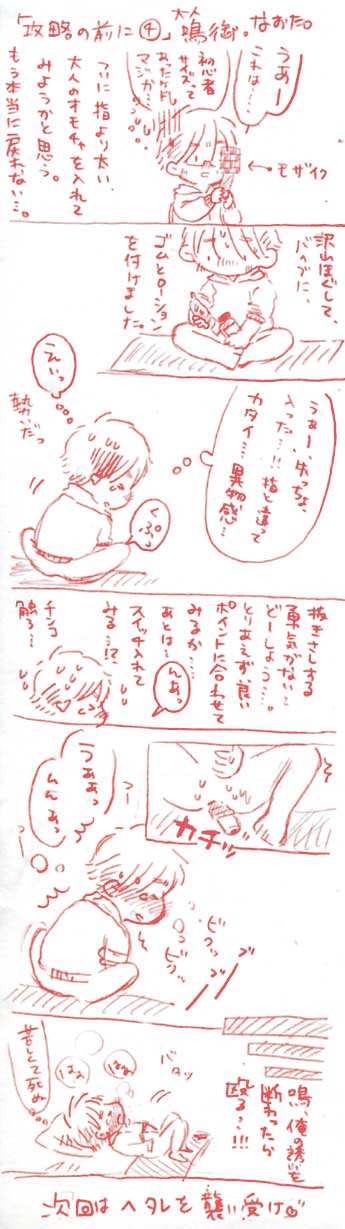 「攻略の前に④」大人鳴御。なおた。
うぁー
これは…
初心者
サイズって
あったケド
マジか…
←モザイク
ついに指より太い、
大人のオモチャを入れて
みようかと思う。
もう本当に戻れない…。
沢山ほぐして、
バイブに、
ゴムとローション
を付けました。
うぁー、ホっちょ、
入った…!!指と違って
カタイ……異物感…
えいっ
勢いだっ
くぷっ
抜きさしする
勇気がない…
どーしょう……。
とりあえず良い
ポイントに合わせて
みるか……
んあっ
あとは…
スイッチ入れて
みる…!?
チンコ
触ろ…
カチッ
うああっ
んんあっ
ビクッ
ビクッ
ブブ
バタッ
はぁ
はぁ
苦しくて死ぬ
鳴、俺の誘いを
断わったら
殴る…!!!
次回はヘタレを襲い受け